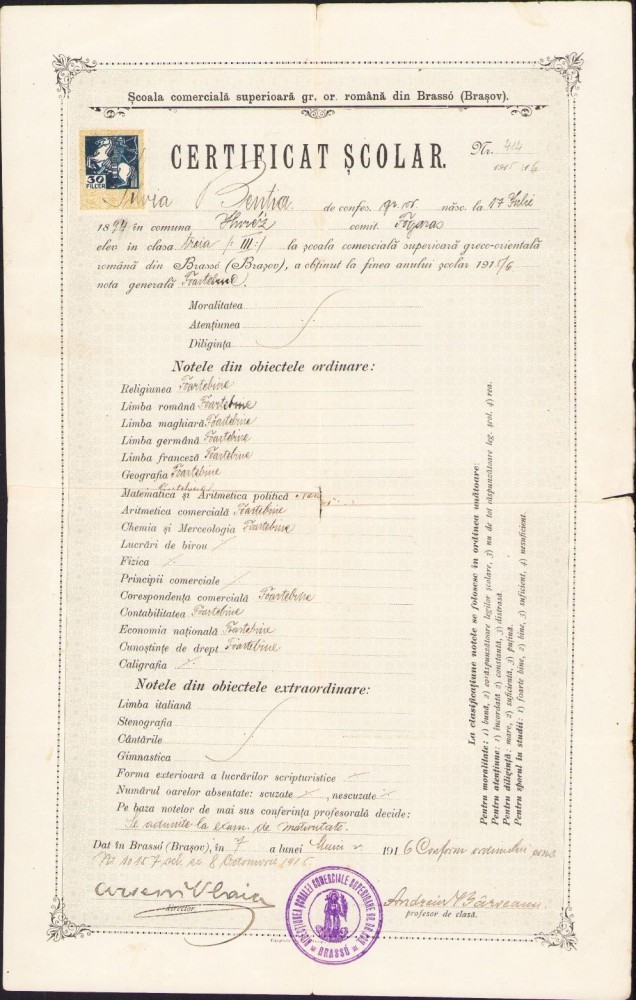 Școala comercială superioară gr. or. română din Brassó (Brașov).
CERTIFICAT ȘCOLAR.
Nr. 414
1915/16
30
FILLER
Silvia Bentia de confes. gr. or. născ. la 17 Iulie
1894 în comuna comit. Făgăraș
elev în clasa treia /: III :/ la școala comercială superioară greco-orientală
română din Brassó (Brașov), a obținut la finea anului școlar 1915/6
nota generală Foartebine
Moralitatea
Atențiunea
Diligința
Notele din obiectele ordinare:
Religiunea Foartebine
Limba română Foartebine
Limba maghiară Foartebine
Limba germână Foartebine
Limba franceză Foartebine
Geografia Foartebine
Matematica și Aritmetica politică
Aritmetica comercială Foartebine
Chemia și Merceologia Foartebine
Lucrări de birou
Fizica
Principii comerciale
Corespondența comercială Foartebine
Contabilitatea Foartebine
Economia națională Foartebine
Cunoștințe de drept Foartebine
Caligrafia
Notele din obiectele extraordinare:
Limba italiană
Stenografia
Cântările
Gimnastica
Forma exterioară a lucrărilor scripturistice
Numărul oarelor absentate: scuzate , nescuzate
Pe baza notelor de mai sus conferința profesorală decide:
Se admite la exam. de maturitate.
Dat în Brassó (Brașov), în 7 a lunei 1916 Conform ordinului
Nr 10157 8 Octomvrie 1915
Arseni Vlaicu
director.
profesor de clasă.
DIRECȚIUNEA ȘCOALEI COMERCIALE SUPERIOARE GR. OR. ROM.
BRASSÓ
La clasificațiune notele se folosesc în ordinea următoare:
Pentru moralitate: 1) bună, 2) corăspunzătoare legilor școlare, 3) nu de tot răspunzătoare leg. școl. 4) rea.
Pentru atențiune: 1) încordată 2) constantă, 3) distrasă.
Pentru diligință: mare, 2) suficientă, 3) puțină.
Pentru sporul în studii: 1) foarte bine, 2) bine, 3) suficient, 4) nesuficient.